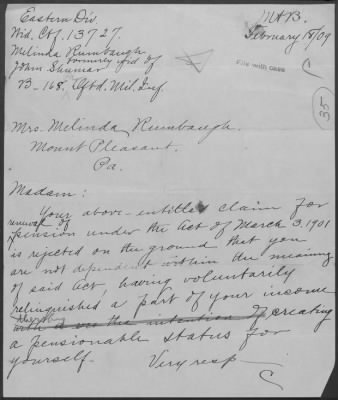 Eastern Div.
M.A.B.
Wid. Ctf. 13727.
February 18/09
Melinda Rumbaugh
formerly wid of
John Shuman
B-168. Pa. Mil. Inf.
FILE WITH CASE
35
Mrs. Melinda Rumbaugh.
Mount Pleasant.
Pa.
Madam:
Your above-entitled claim for
renewal of
pension under the Act of March 3. 1901
is rejected on the ground that you
are not dependent within the meaning
of said Act, having voluntarily
relinquished a part of your income
thereby
with a view the intention of creating
a pensionable status for
yourself.
Very resp